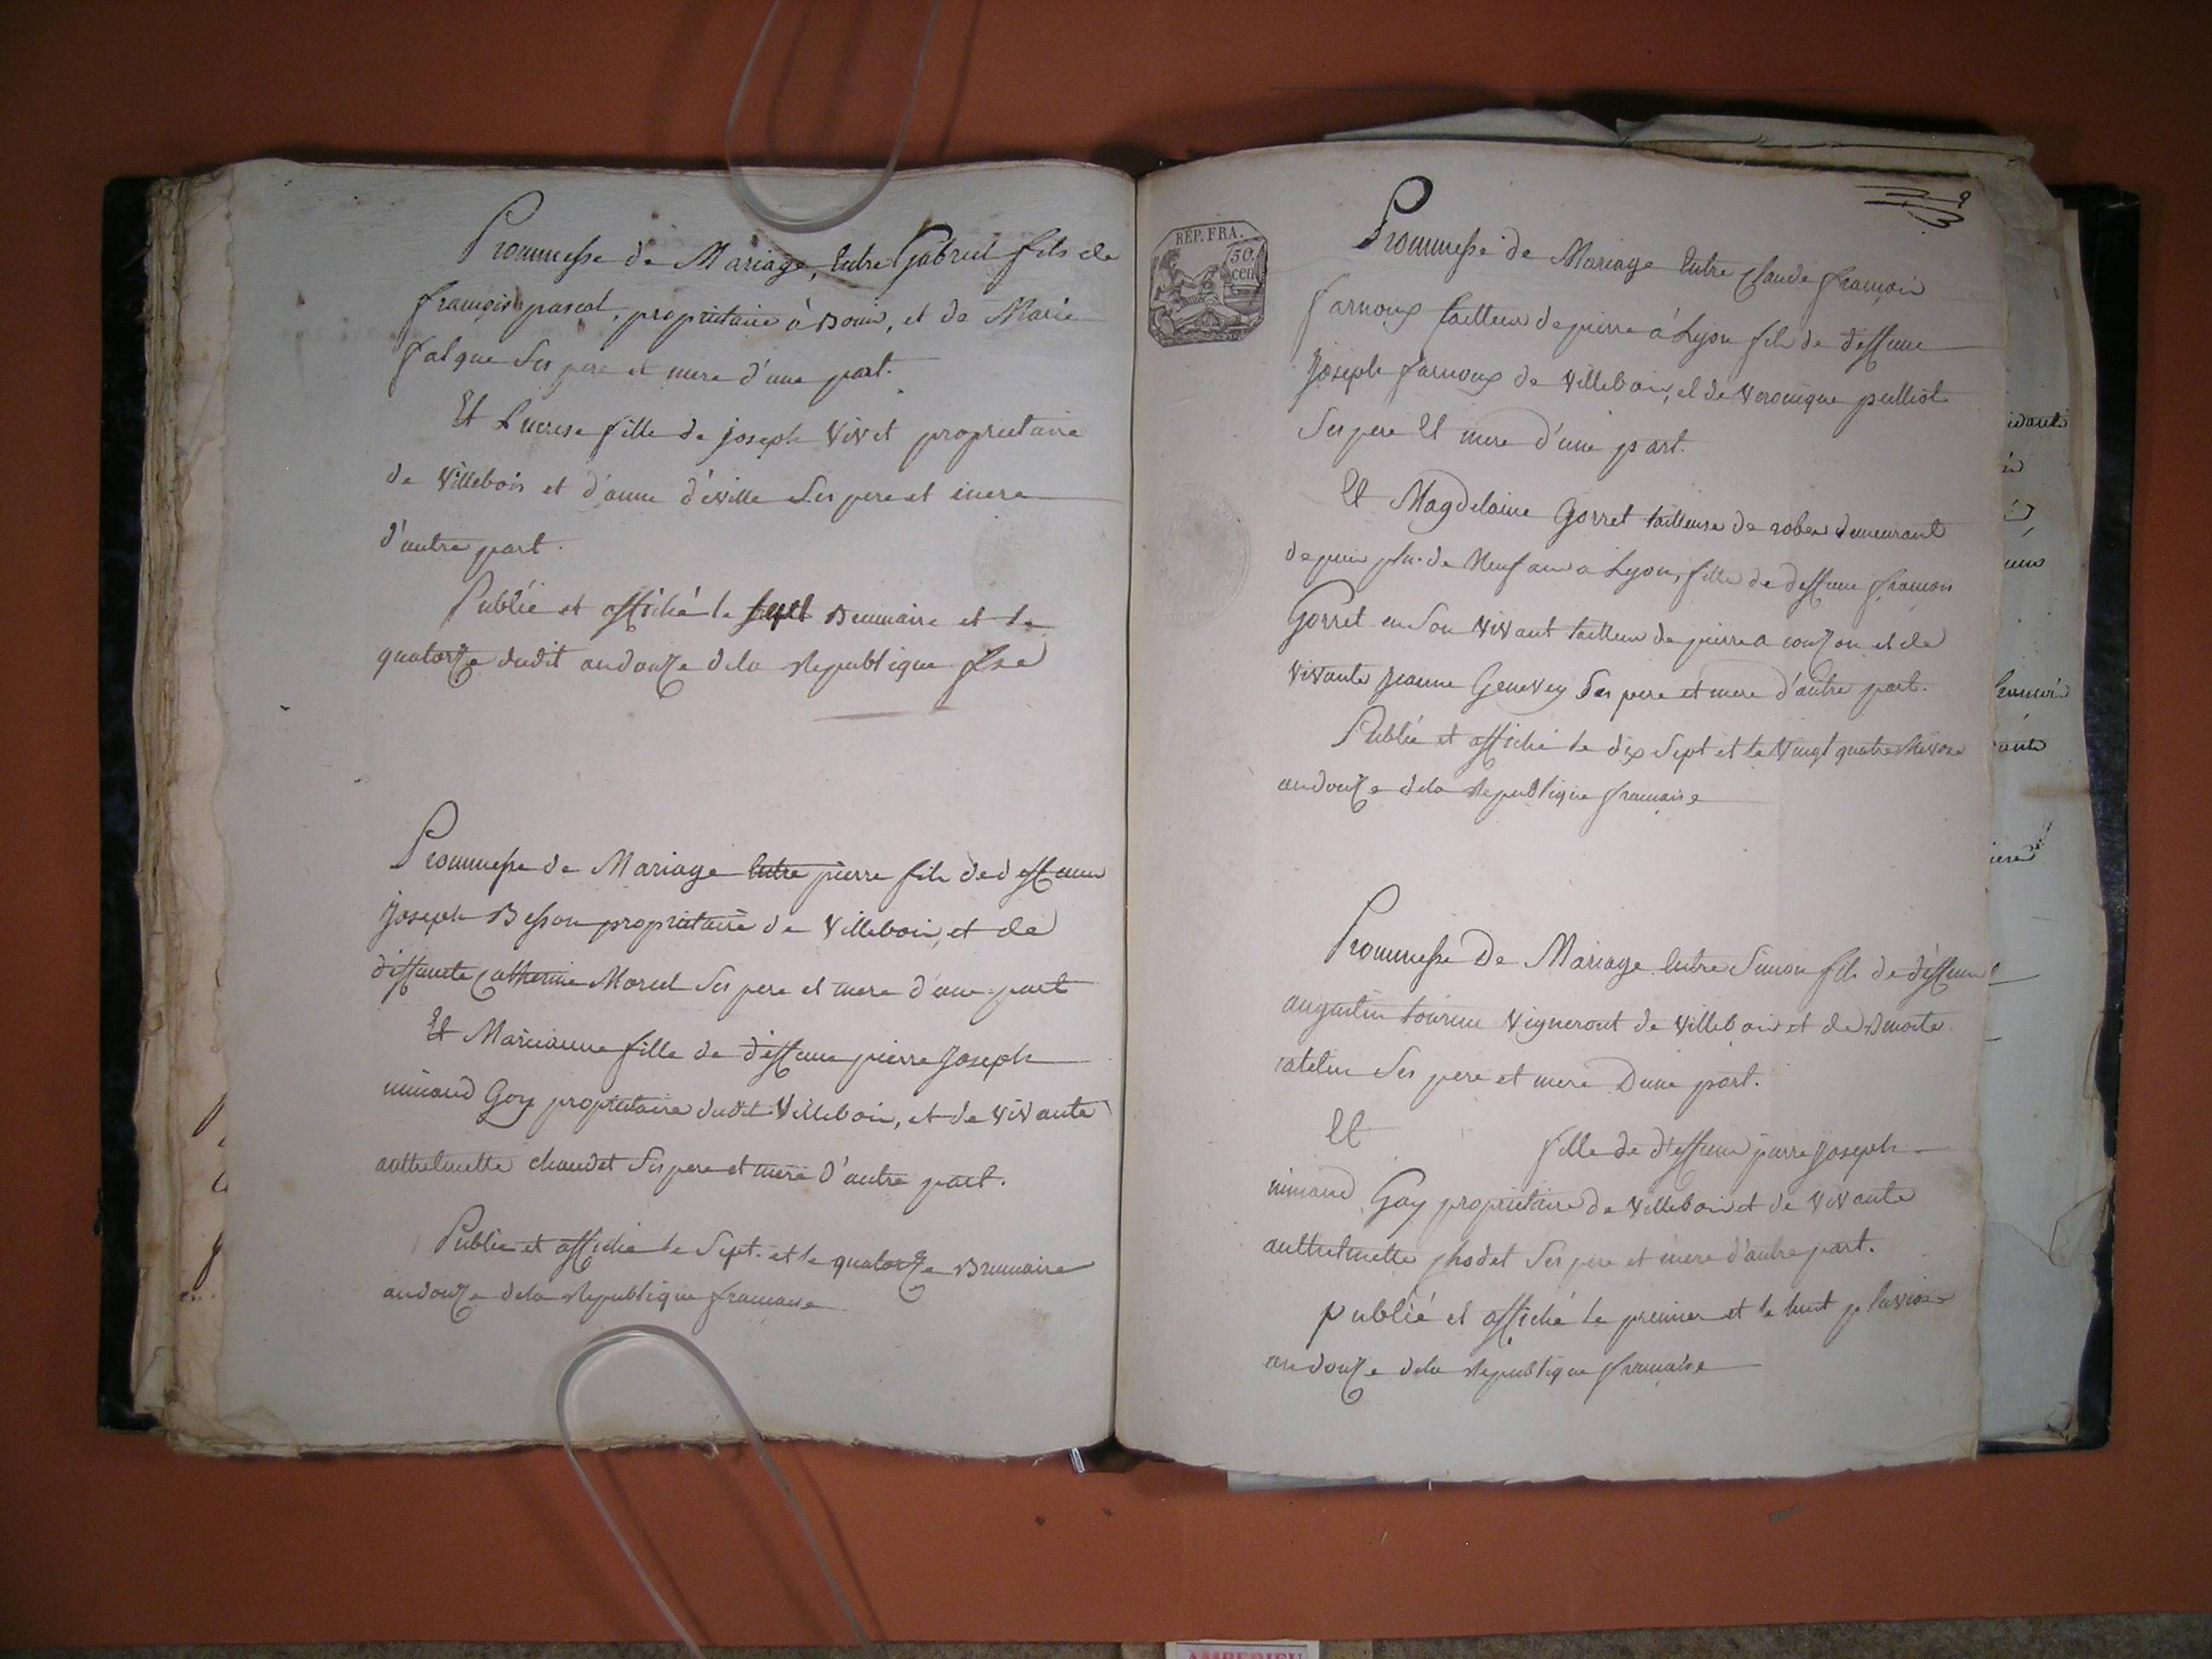 Prommesse de Mariage, Entre Gabriel fils de
françois pascal, proprietaire à Bouis, et de Marie
falque Ses pere et mere d'une part.
Et Lucrese fille de joseph Vivet proprietaire
de Villebois et d'anne déville Ses pere et mere
d'autre part.
Publié et affiché le sept Brumaire et le
quatorze dudit an douze dela Republique fse
Prommesse de Mariage Entre pierre fils de deffunt
Joseph Besson proprietaire de Villebois, et de
deffuncte Catherine Morel Ses pere et mere d'une part
Et Marianne fille de deffunt pierre Joseph
mimand Goy proprietaire dudit Villebois, et de Vivante
anthelmette chaudet Ses pere et mere d'autre part.
Publié et affiché le Sept. et le quatorze Brumaire
an douze dela Republique francaise
9
RÉP. FRA.
50
cen
Prommesse de Mariage Entre Claude françois
farnoux tailleur de pierre à Lyon fils de deffunt
Joseph farnoux de Villebois, et de Veronique pulliat
Ses pere Et mere d'une part.
Et Magdelaine Gorret tailleuse de robes demeurant
depuis plus de Neuf ans a Lyon, fille de deffunt françois
Gorret en Son Vivant tailleur de pierre a couzon et de
Vivante Jeanne Genevey Ses pere et mere d'autre part.
Publié et affiché le dix Sept et le Vingt quatre Nivose
an douze dela Republique francaise
Prommesse De Mariage Entre Simon fils de deffunt
augustin tournier Vigneront de Villebois et de Benoite
ratelin Ses pere et mere Dune part.
Et fille de deffunt pierre Joseph
mimand Goy proprietaire de Villebois et de Vivante
anthelmette chodet Ses pere et mere d'autre part.
publié et affiché le premier et le huit pluviose
an douze dela Republique francaise